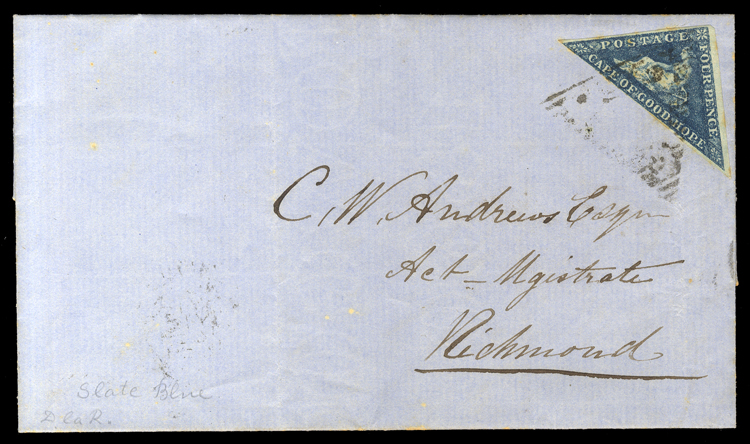 POSTAGE
CAPE OF GOOD HOPE
FOUR PENCE
C. W. Andrews Esqre
Act - Mgistrate
Richmond
Slate Blue
D la R.